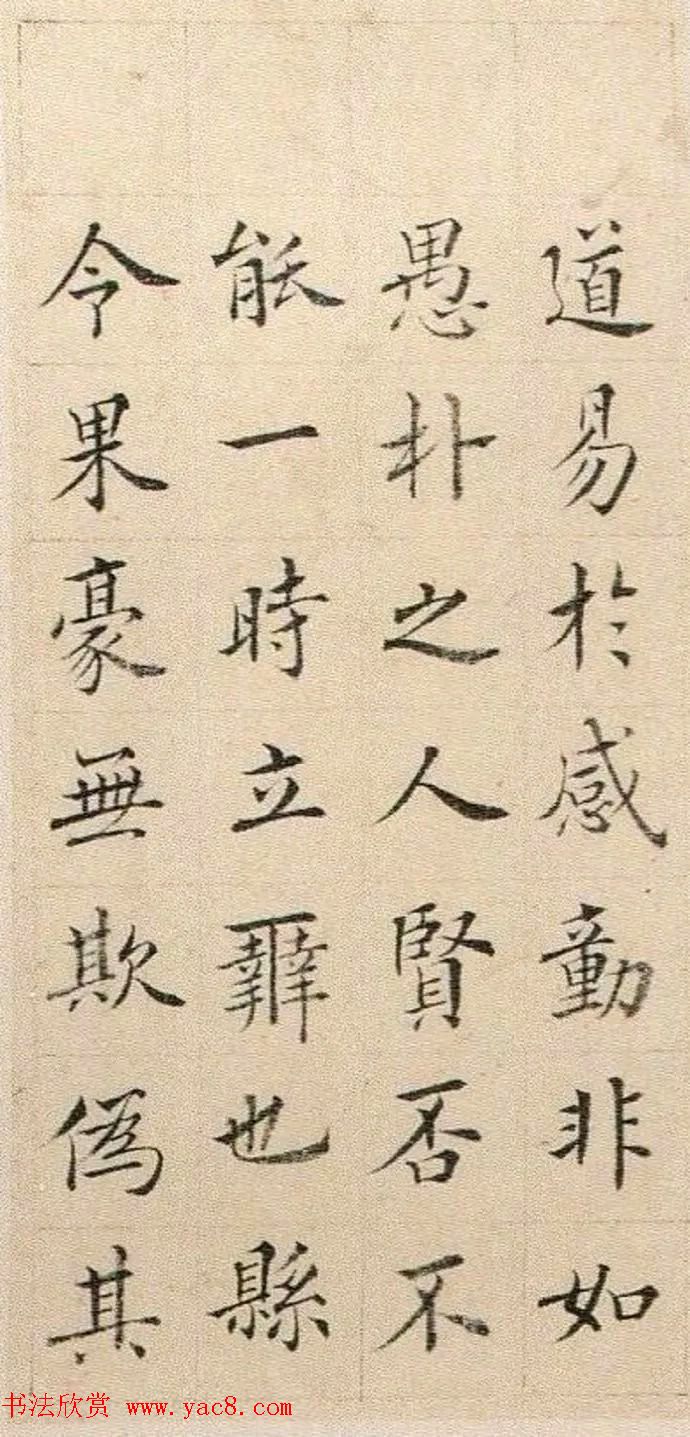 道易於感動非如
愚朴之人賢否不
能一時立辨也縣
令果豪無欺偽其
书法欣赏 www.yac8.com